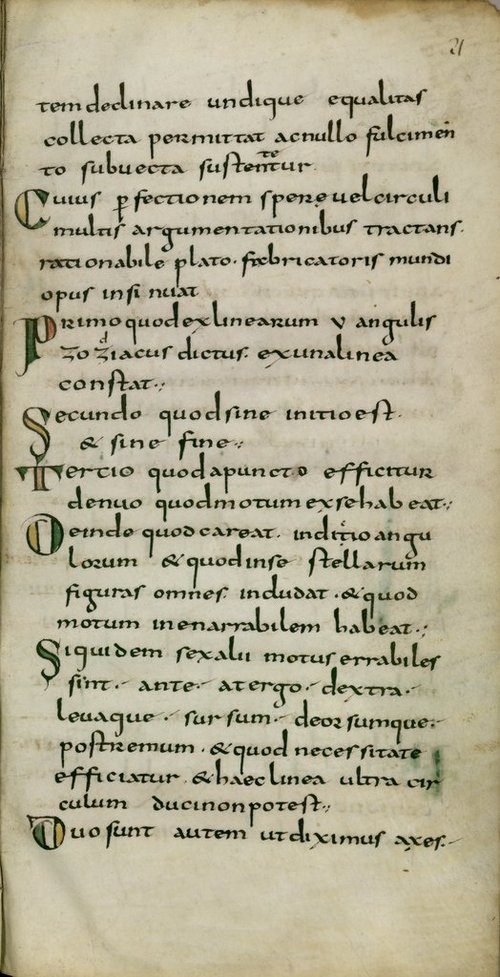 21
tem declinare undique equalitas
collecta permittat ac nullo fulcimen
to subuecta sustentetur.
Cuius p̱fectionem sperę uel circuli
multis argumentationibus tractans.
rationabile plato. fabricatoris mundi
opus insinuat
Primo quod ex linearum v angulis
zoꝫiacus dictus. ex una linea
constat.,
Secundo quod sine initio est.
& sine fine.,
Tertio quod a puncto efficitur
denuo quod motum ex se habeat.,
Deinde quod careat. inditio angu
lorum & quod in se stellarum
figuras omnes includat. & quod
motum inenarrabilem habeat.,
Siquidem sex alii motus errabiles
sint. ante. a tergo. dextra.
leuaque. sursum. deorsumque.
postremum. & quod necessitate
efficiatur. & haec linea ultra cir
culum duci non potest.,
Duo sunt autem ut diximus axes.